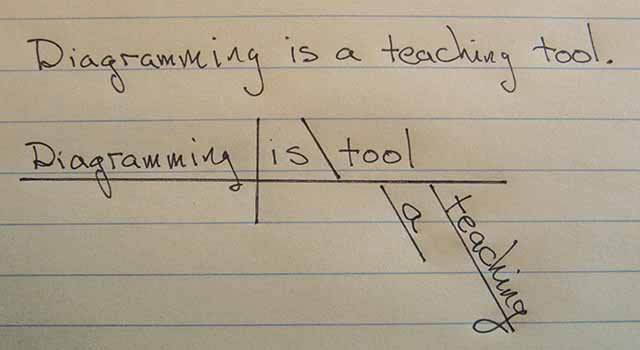 Diagramming is a teaching tool.
Diagramming is tool
a
teaching